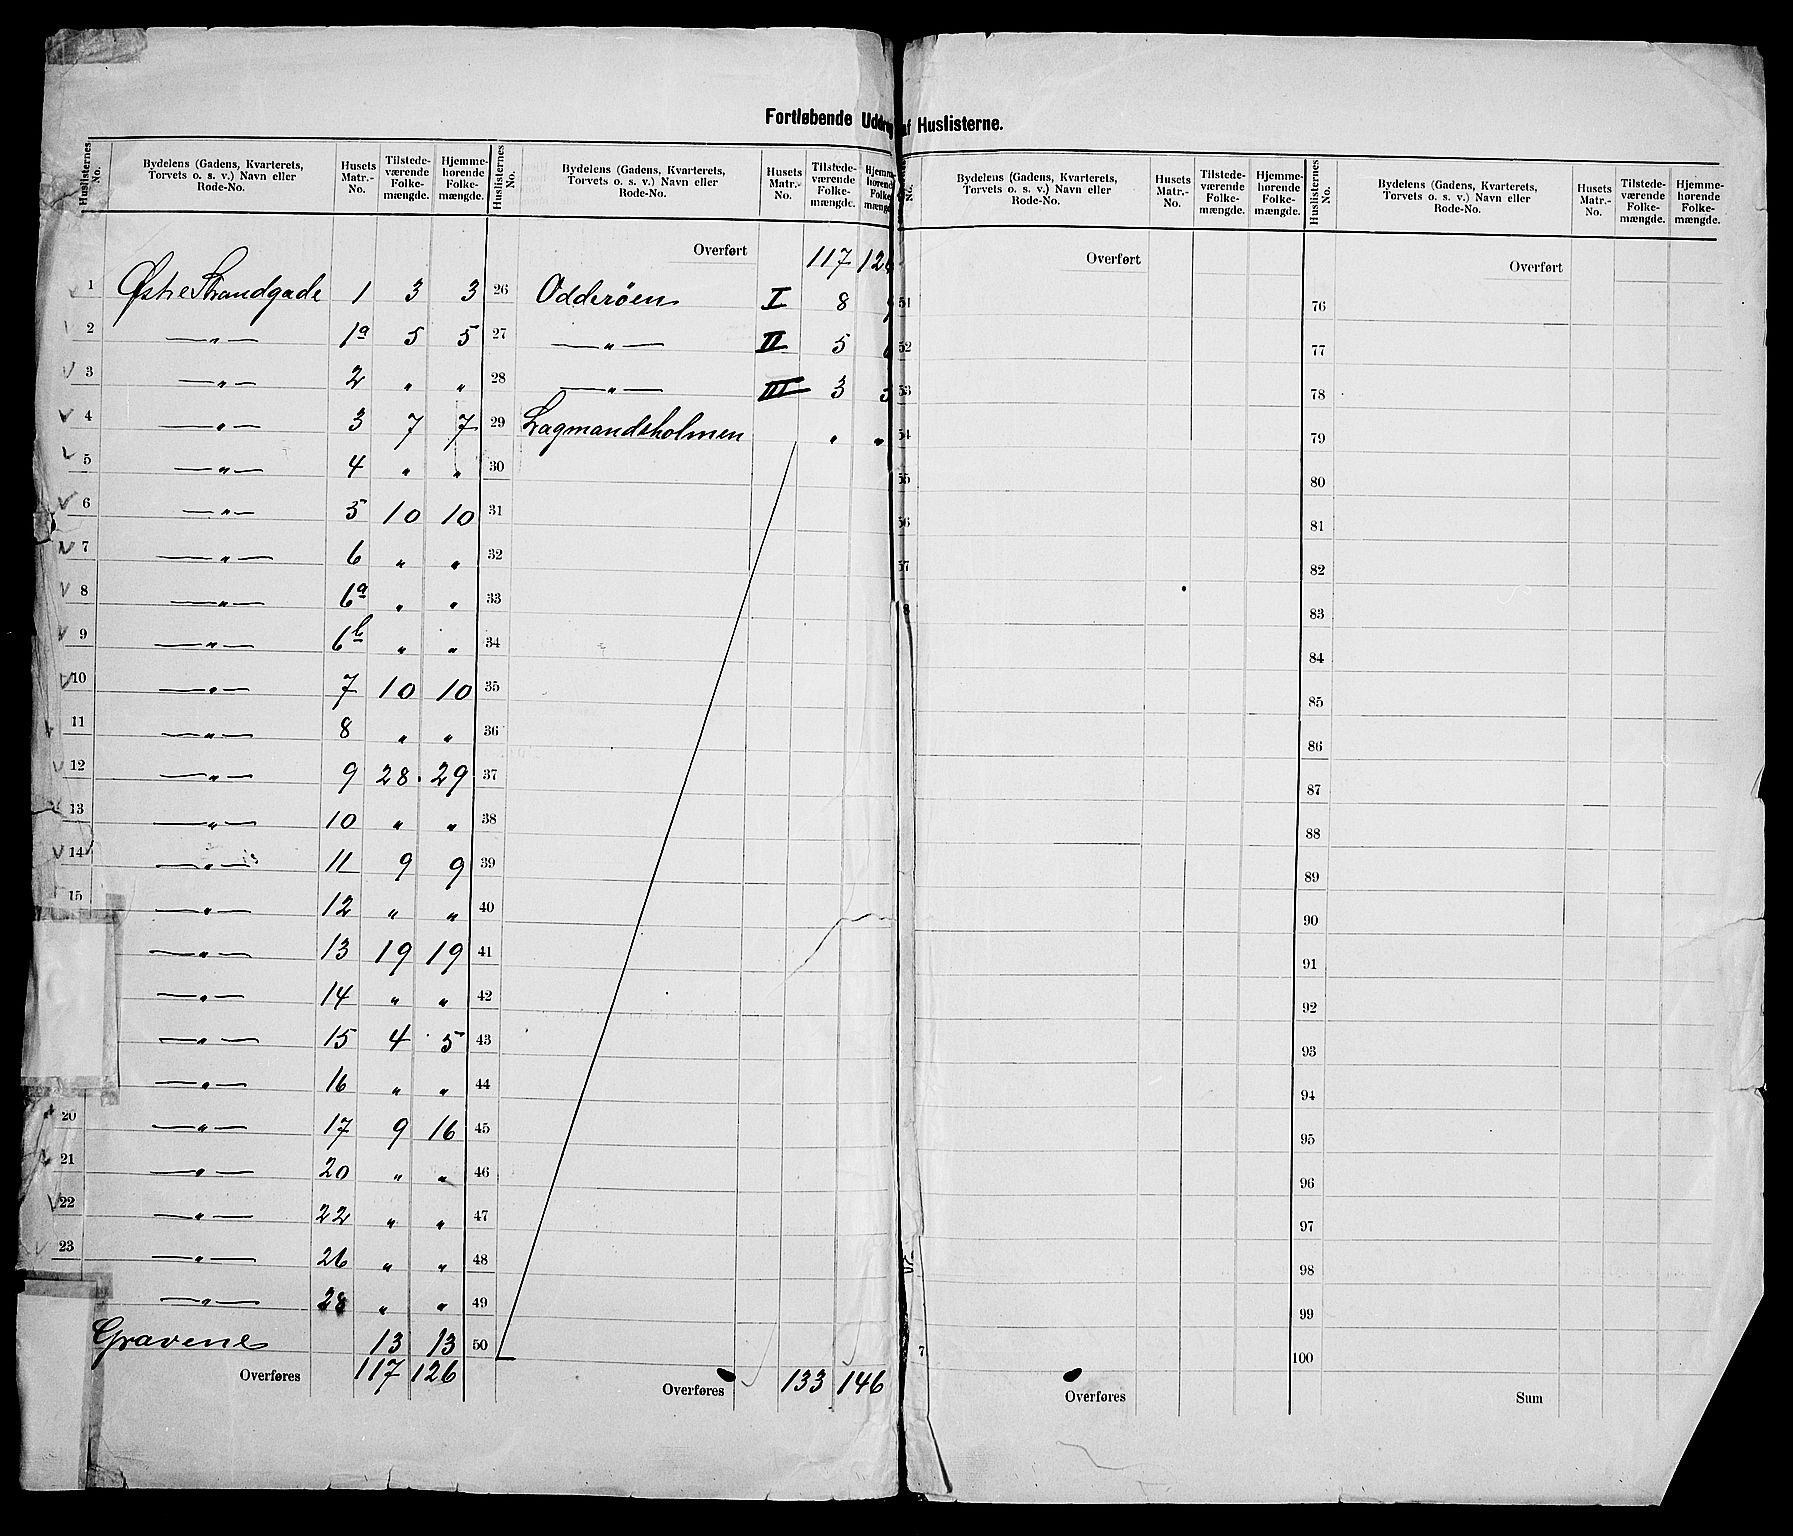 Fortløbende Uddrag af Huslisterne.
Huslisternes No. Bydelens (Gadens, Kvarterets, Torvets o. s. v.) Navn eller Rode-No. Husets Matr.-No. Tilstedeværende Folkemængde. Hjemmehørende Folkemængde.
1 Østre Strandgade 1 3 3
2 —„— 1a 5 5
3 —„— 2 „ „
4 —„— 3 7 7
5 —„— 4 „ „
6 —„— 5 10 10
7 —„— 6 „ „
8 —„— 6a „ „
9 —„— 6b „ „
10 —„— 7 10 10
11 —„— 8 „ „
12 —„— 9 28 29
13 —„— 10 „ „
14 —„— 11 9 9
15 —„— 12 „ „
—„— 13 19 19
—„— 14 „ „
—„— 15 4 5
—„— 16 „ „
20 —„— 17 9 16
21 —„— 20 „ „
22 —„— 22 „ „
23 —„— 26 „ „
—„— 28 „ „
Gravene 13 13
Overføres 117 126
Huslisternes No. Bydelens (Gadens, Kvarterets, Torvets o. s. v.) Navn eller Rode-No. Husets Matr.-No. Tilstedeværende Folkemængde.
Overført 117
26 Odderøen I 8
27 —„— II 5
28 —„— III 3 3
29 Lagmandsholmen „ „
30
31
32
33
34
35
36
37
38
39
40
41
42
43
44
45
46
47
48
49
50
Overføres 133 146
Bydelens (Gadens, Kvarterets, Torvets o. s. v.) Navn eller Rode-No. Husets Matr.-No. Tilstedeværende Folkemængde. Hjemmehørende Folkemængde.
Overført
Overføres
Huslisternes No. Bydelens (Gadens, Kvarterets, Torvets o. s. v.) Navn eller Rode-No. Husets Matr.-No. Tilstedeværende Folkemængde. Hjemmehørende Folkemængde.
Overført
76
77
78
79
80
81
82
83
84
85
86
87
88
89
90
91
92
93
94
95
96
97
98
99
100
Sum